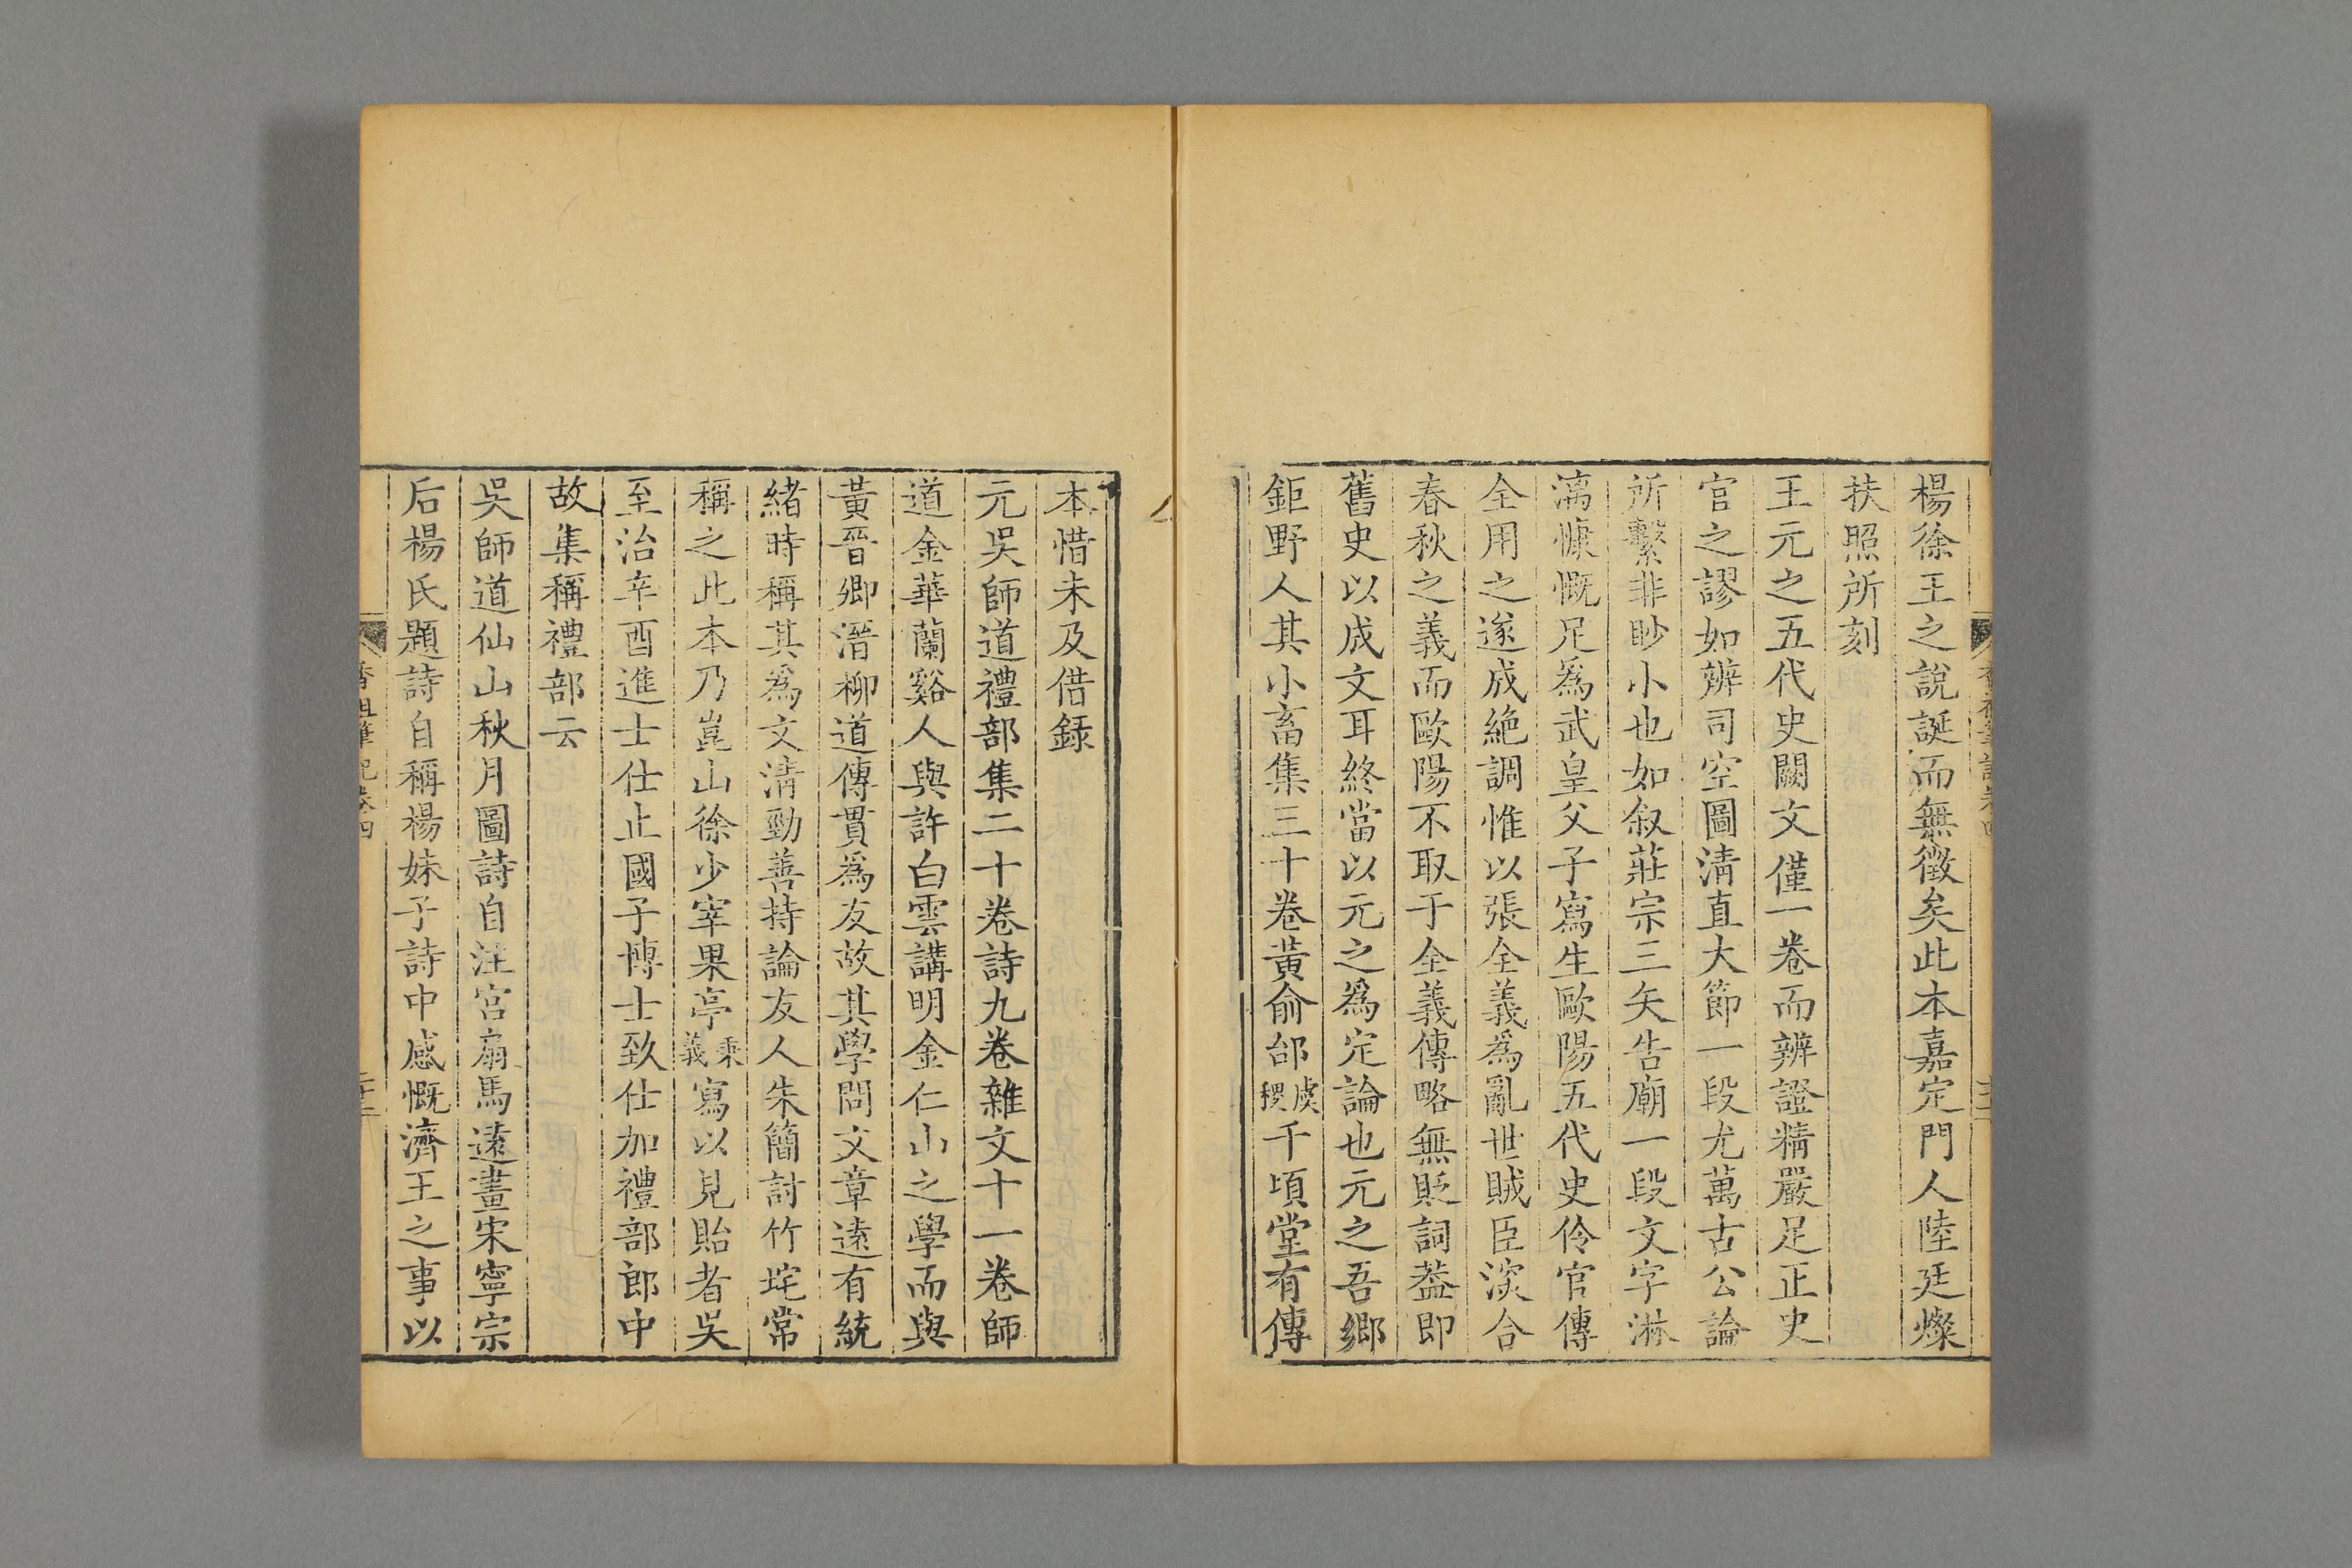 楊徐王之說誕而無徵矣此本嘉定門人陸廷燦
扶照所刻
王元之五代史闕文僅一卷而辨證精嚴足正史
官之謬如辨司空圖清直大節一段尤萬古公論
所繫非眇小也如叙莊宗三矢告廟一段文字淋
漓慷慨足爲武皇父子寫生歐陽五代史伶官傳
全用之遂成絶調惟以張全義爲亂世賊臣深合
春秋之義而歐陽不取于全義傳略無貶詞葢即
舊史以成文耳終當以元之爲定論也元之吾鄉
鉅野人其小畜集三十卷黃俞邰虞稷千頃堂有傳
本惜未及借錄
元吳師道禮部集二十卷詩九卷雜文十一卷師
道金華蘭谿人與許白雲講明金仁山之學而與
黃晉卿溍柳道傳貫爲友故其學問文章遠有統
緒時稱其爲文清勁善持論友人朱簡討竹垞常
稱之此本乃崑山徐少宰果亭秉義寫以見貽者吳
至治辛酉進士仕止國子博士致仕加禮部郎中
故集稱禮部云
吳師道仙山秋月圖詩自注宮扇馬遠畫宋寧宗
后楊氏題詩自稱楊妹子詩中感慨濟王之事以
香祖筆記卷四